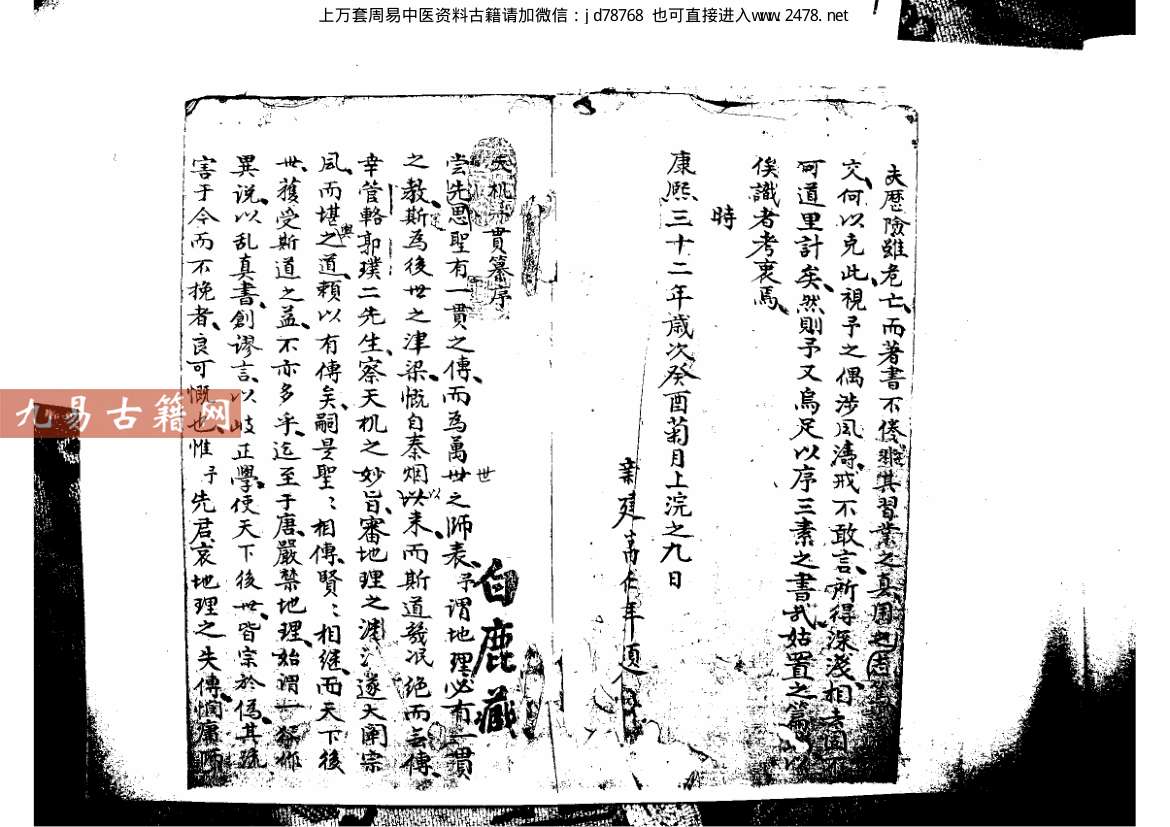 上万套周易中医资料古籍请加微信：jd78768 也可直接进入www.2478.net
夫歷險雖危亡而著書不倦非其習業之真固也
交何以克此視予之偶涉风濤戒不敢言所得深淺相去固不
可道里計矣然則予又烏足以序三素之書哉姑置之篇以
俟識者考衷焉
時
康熈三十二年歲次癸酉菊月上浣之九日
新建高仁年題
天机一貫纂序
嘗先思聖有一貫之傳而為萬世之師表予謂地理必有一貫
世
之教斯為後世之津梁慨自秦烟以来而斯道幾泯絕而无傳
幸管輅郭璞二先生察天机之妙旨審地理之淵遂大闡宗
风而堪輿之道頼以有傳矣嗣是聖〻相傳賢〻相継而天下後
世獲受斯道之益不亦多乎迄至于唐嚴禁地理始謂一行作
異说以乱真書創謬言以岐正學使天下後世皆宗於偽其疏
害于今而不挽者良可慨也惟予先君哀地理之失傳憫庸师
白鹿藏
九易古籍网